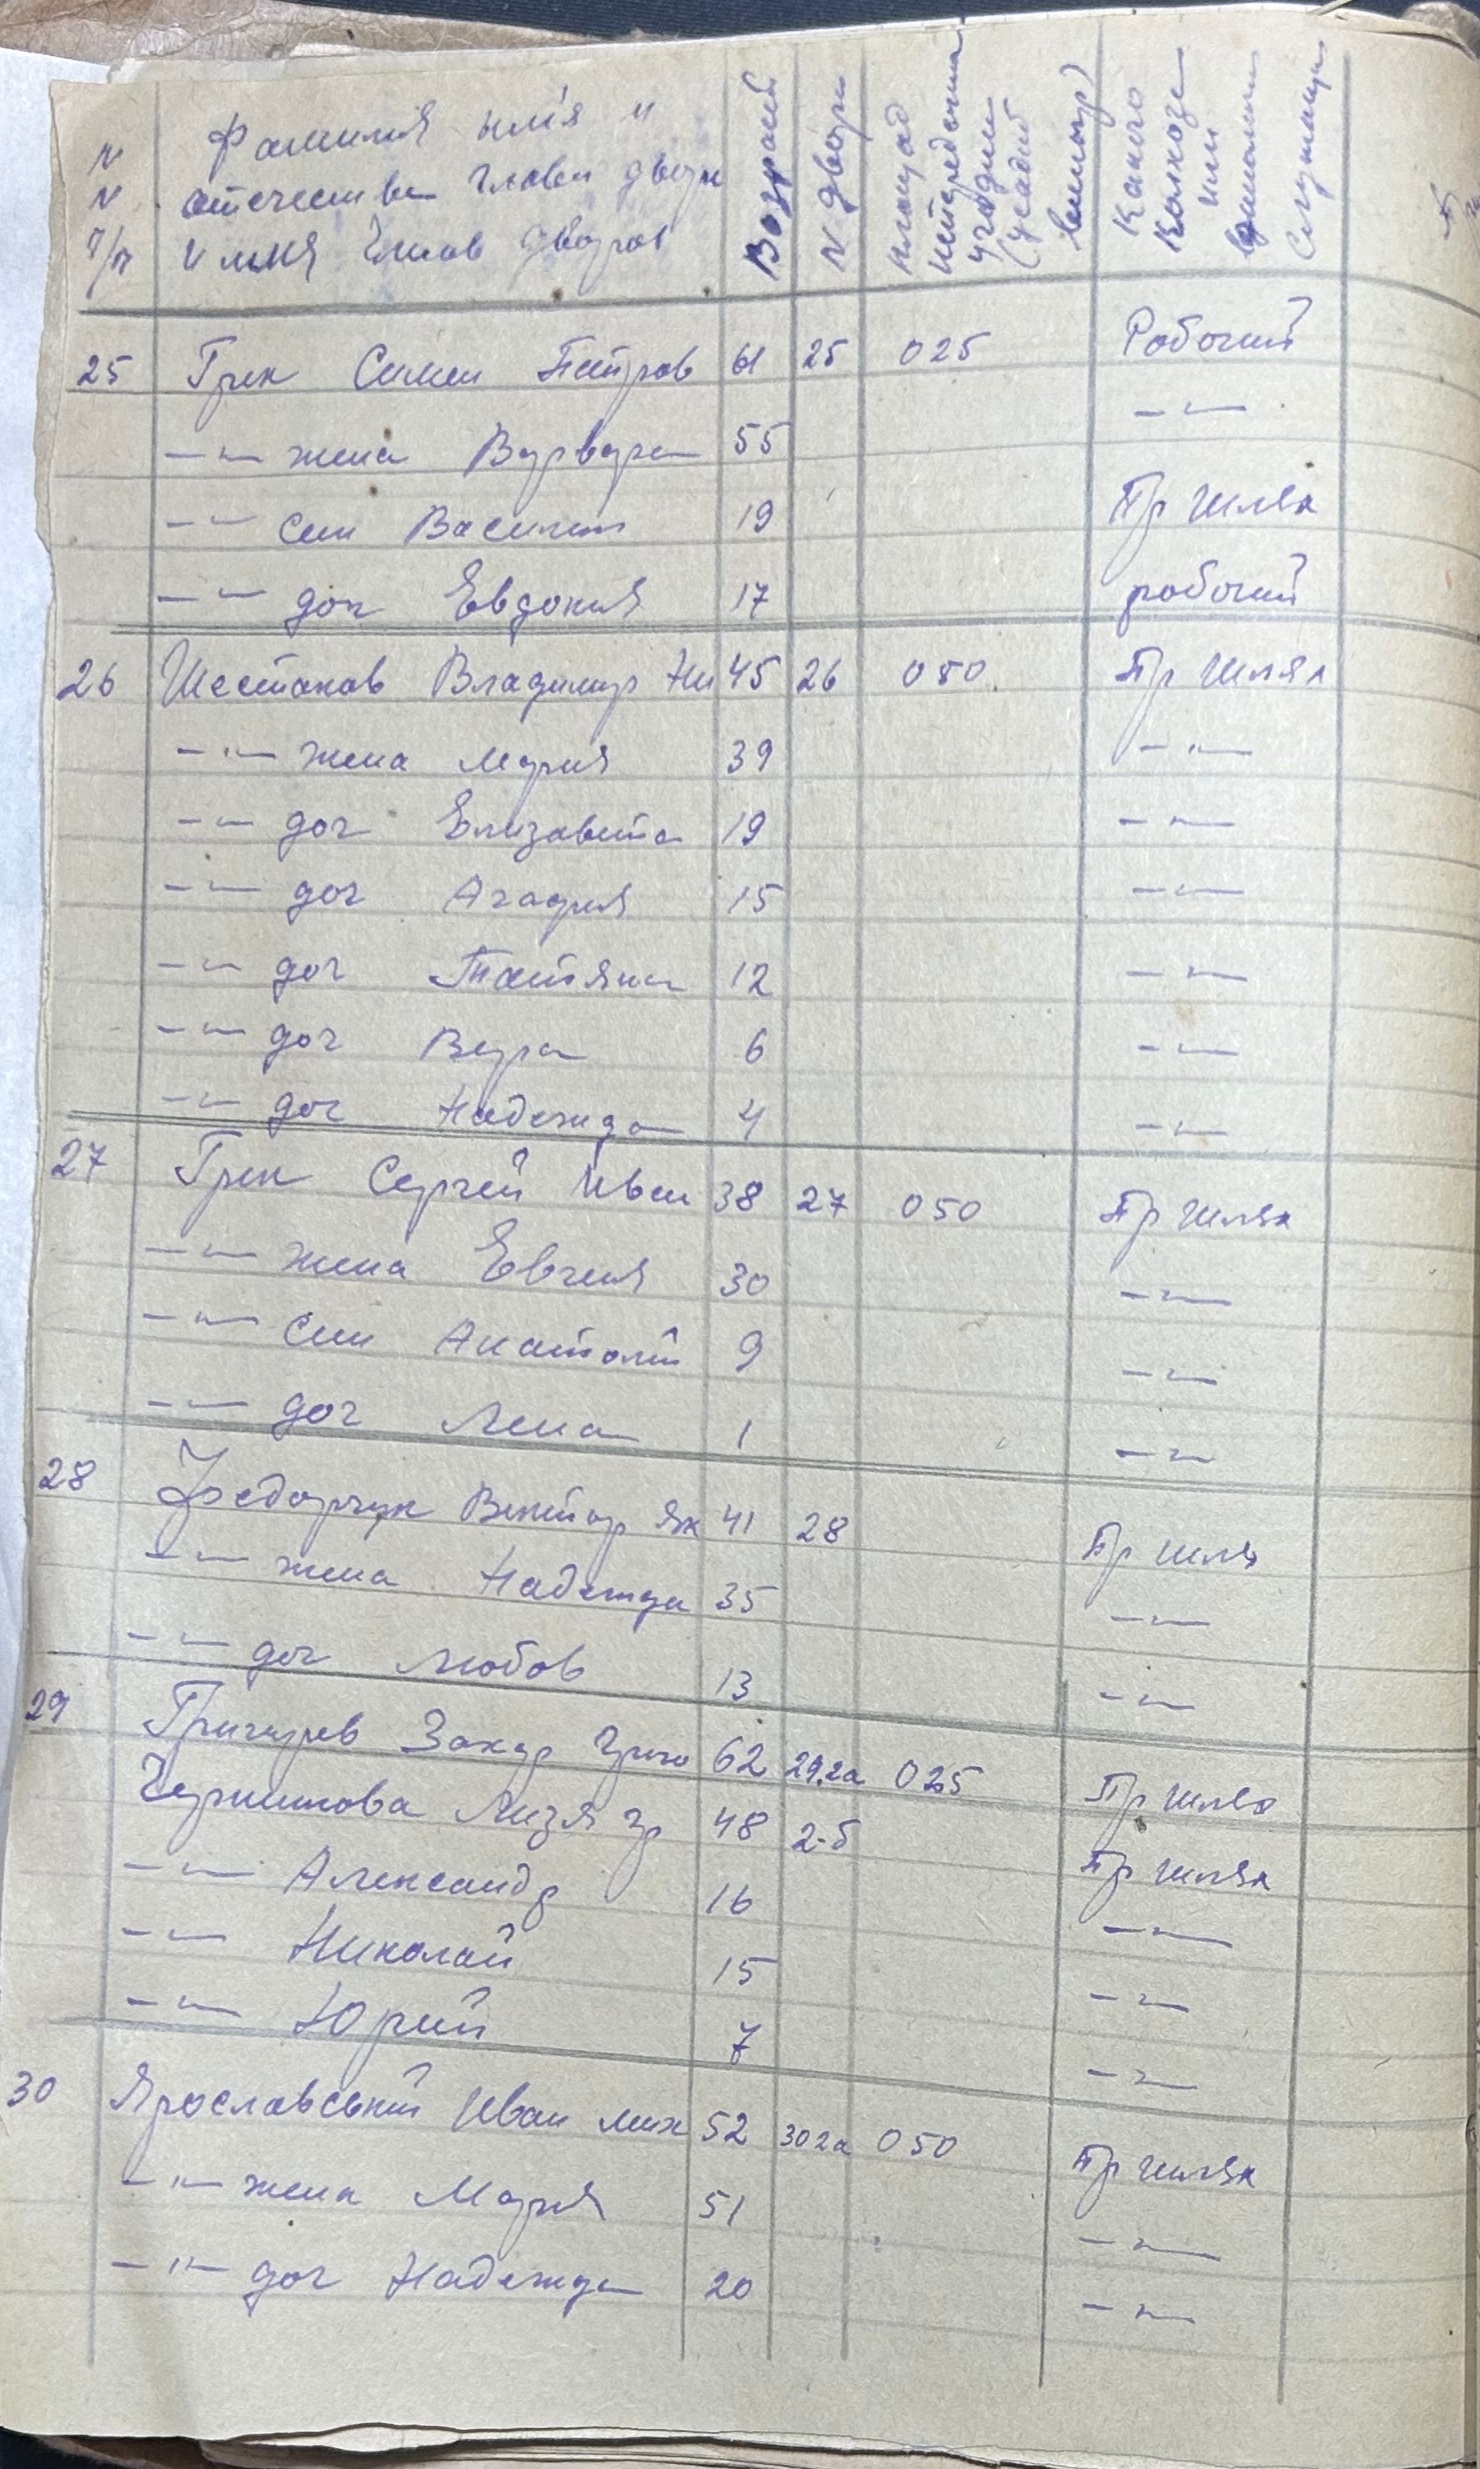 N N п/п
Фамилия имя и
отечества главы двора
и имя членов дворов
Возраст
N двора
площад
(усадиб
Какого
колхоза
или
Служащи
25 Грек Семен Петров 61 25 025 Робочий
—"— жена Варвара 55 —"—
—"— син Василий 19 Пр Шлях
—"— доч Евдокия 17 робочий
26 Шестаков Владимир Ни 45 26 050 Пр Шлях
—"— жена Мария 39 —"—
—"— доч Елизавета 19 —"—
—"— доч Агафия 15 —"—
—"— доч Татяна 12 —"—
—"— доч Вера 6 —"—
—"— доч Надежда 4 —"—
27 Грек Сергей Иван 38 27 050 Пр шлях
—"— жена Евгеия 30 —"—
—"— син Анатолий 9 —"—
—"— доч Лена 1 —"—
28 Федорчук Виктор Як 41 28 Пр шлях
—"— жена Надежда 35 —"—
—"— доч Любов 13 —"—
29 Григурев Захар 62 29.2а 025 Пр шлях
Чернишова Лизя Гр 48 2-б Пр шлях
—"— Александр 16 —"—
—"— Николай 15 —"—
—"— Юрий 7 —"—
30 Ярославський Иван Мих 52 30 2а 050 Пр шлях
—"— жена Мария 51 —"—
—"— доч Надежда 20 —"—